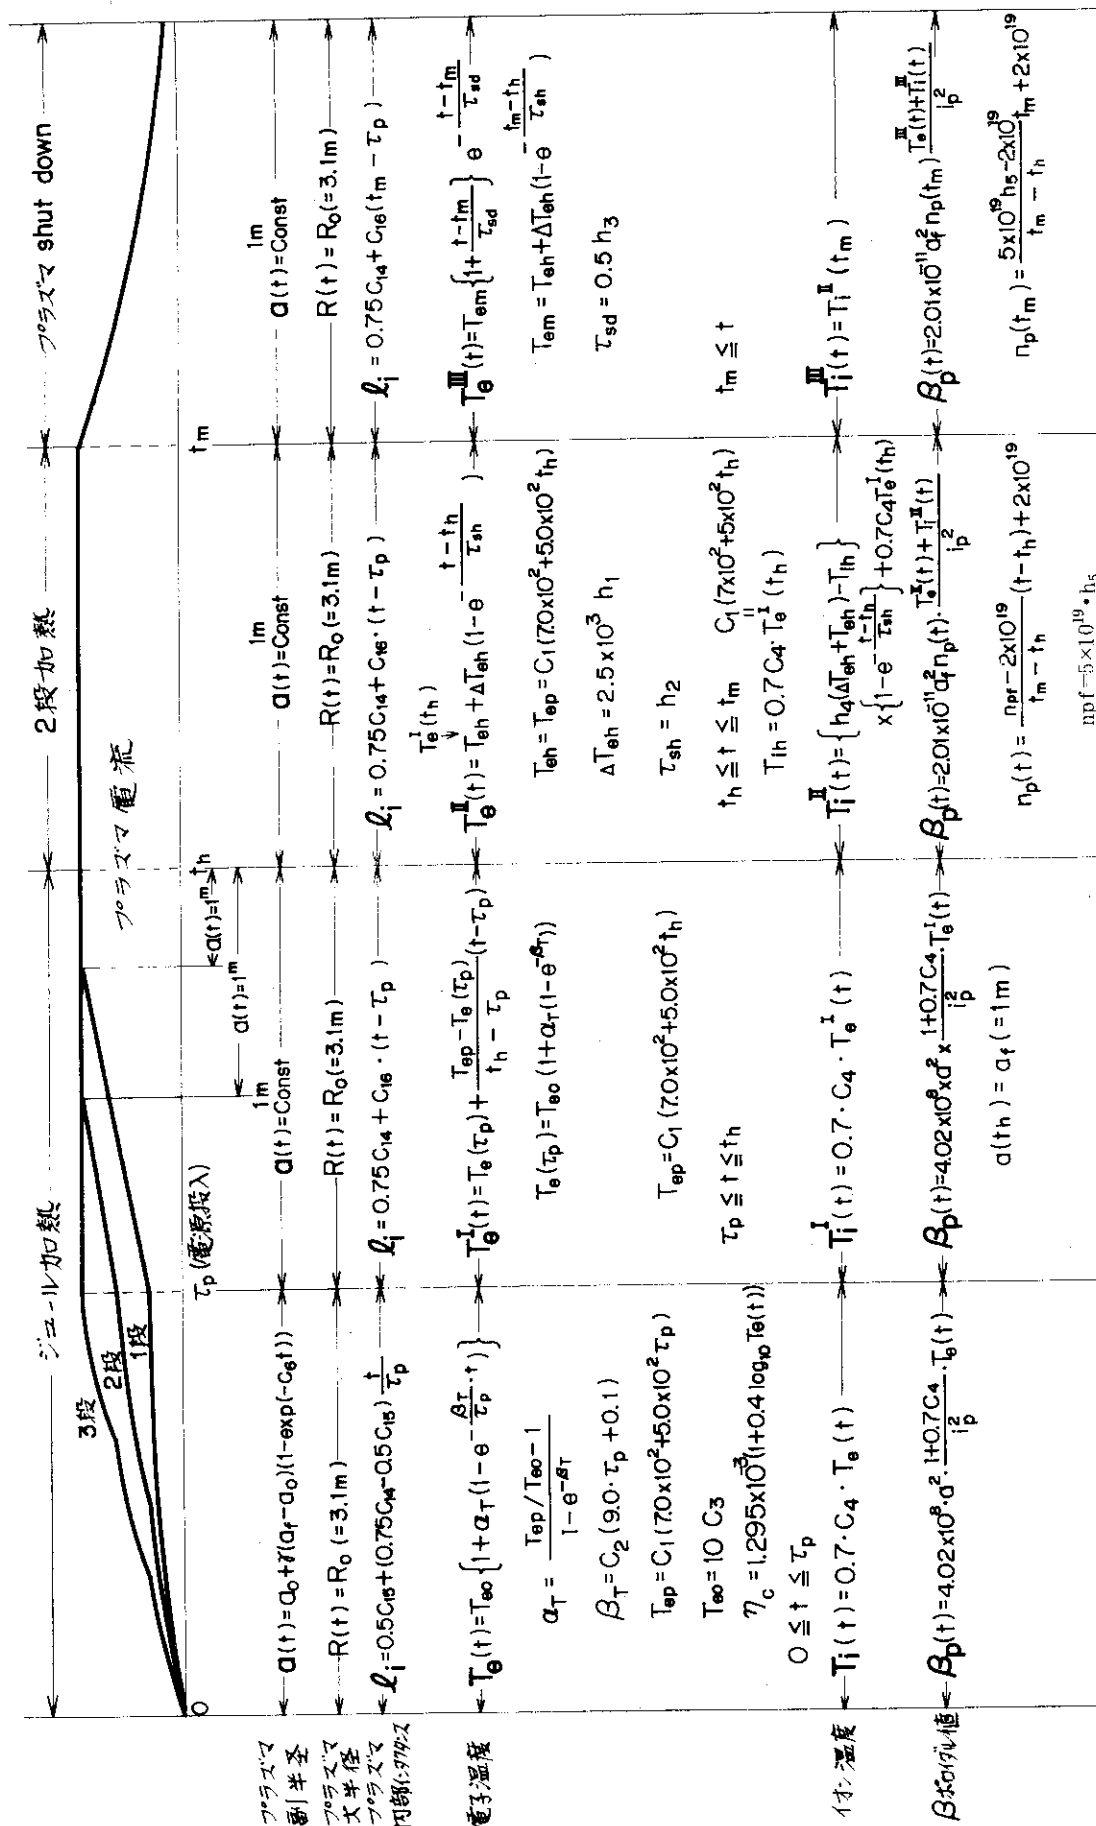 ジュール加熱
2段加熱
プラズマ shut down
プラズマ電流
3段
2段
1段
a(t)=1m
a(t)=1m
0
τp (電源投入)
th
tm
プラズマ副半径
a(t)=a0+γ(af−a0)(1−exp(−C6t))
a(t)=Const 1m
a(t)=Const 1m
a(t)=Const 1m
プラズマ大半径
R(t)=R0(=3.1m)
R(t)=R0(=3.1m)
R(t)=R0(=3.1m)
R(t)=R0(=3.1m)
プラズマ内部インダクタンス
ℓi=0.5C15+(0.75C14−0.5C15) t/τp
ℓi=0.75C14+C16·(t−τp)
ℓi=0.75C14+C16·(t−τp)
ℓi=0.75C14+C16(tm−τp)
電子温度
Te(t)=Te0{1+αT(1−e^(−(βT/τp)·t))}
αT=(Tep/Te0−1)/(1−e^(−βT))
βT=C2(9.0·τp+0.1)
Tep=C1(7.0×10^2+5.0×10^2τp)
Te0=10C3
ηc=1.295×10^-3(1+0.4log10Te(t))
0≦t≦τp
Te^I(t)=Te(τp)+(Tep−Te(τp))/(th−τp)(t−τp)
Te(τp)=Te0(1+αT(1−e^(−βT)))
Tep=C1(7.0×10^2+5.0×10^2th)
τp≦t≦th
Te^I(th)
Te^II(t)=Teh+ΔTeh(1−e^(−(t−th)/τsh))
Teh=Tep=C1(7.0×10^2+5.0×10^2th)
ΔTeh=2.5×10^3 h1
τsh=h2
th≦t≦tm
C1(7×10^2+5×10^2th)
Tih=0.7C4·Te^I(th)
Te^III(t)=Tem{1+(t−tm)/τsd}e^(−(t−tm)/τsd)
Tem=Teh+ΔTeh(1−e^(−(tm−th)/τsh))
τsd=0.5h3
tm≦t
イオン温度
Ti(t)=0.7·C4·Te(t)
Ti^I(t)=0.7·C4·Te^I(t)
Ti^II(t)={h4(ΔTeh+Teh)−Tih}
×{1−e^(−(t−th)/τsh)}+0.7C4Te^I(th)
Ti^III(t)=Ti^II(tm)
βポロイダル値
βp(t)=4.02×10^8·a^2·(1+0.7C4)/ip^2·Te(t)
βp(t)=4.02×10^8×a^2×(1+0.7C4)/ip^2·Te^I(t)
a(th)=af(=1m)
βp(t)=2.01×10^-11 af^2 np(t)·(Te^II(t)+Ti^II(t))/ip^2
np(t)=(npf−2×10^19)/(tm−th)(t−th)+2×10^19
npf=5×10^19·h5
βp(t)=2.01×10^-11 af^2 np(tm)(Te^III(t)+Ti^III(t))/ip^2
np(tm)=(5×10^19h5−2×10^19)/(tm−th) tm+2×10^19